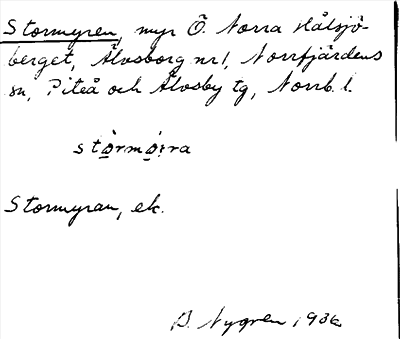 Stormyren, myr Ö. Norra Hålsjö-
berget, Älvsborg nr 1, Norrfjärdens
sn, Piteå och Älvsby tg, Norrb. l.
Stormyran, ek.
B. Nygren 1936